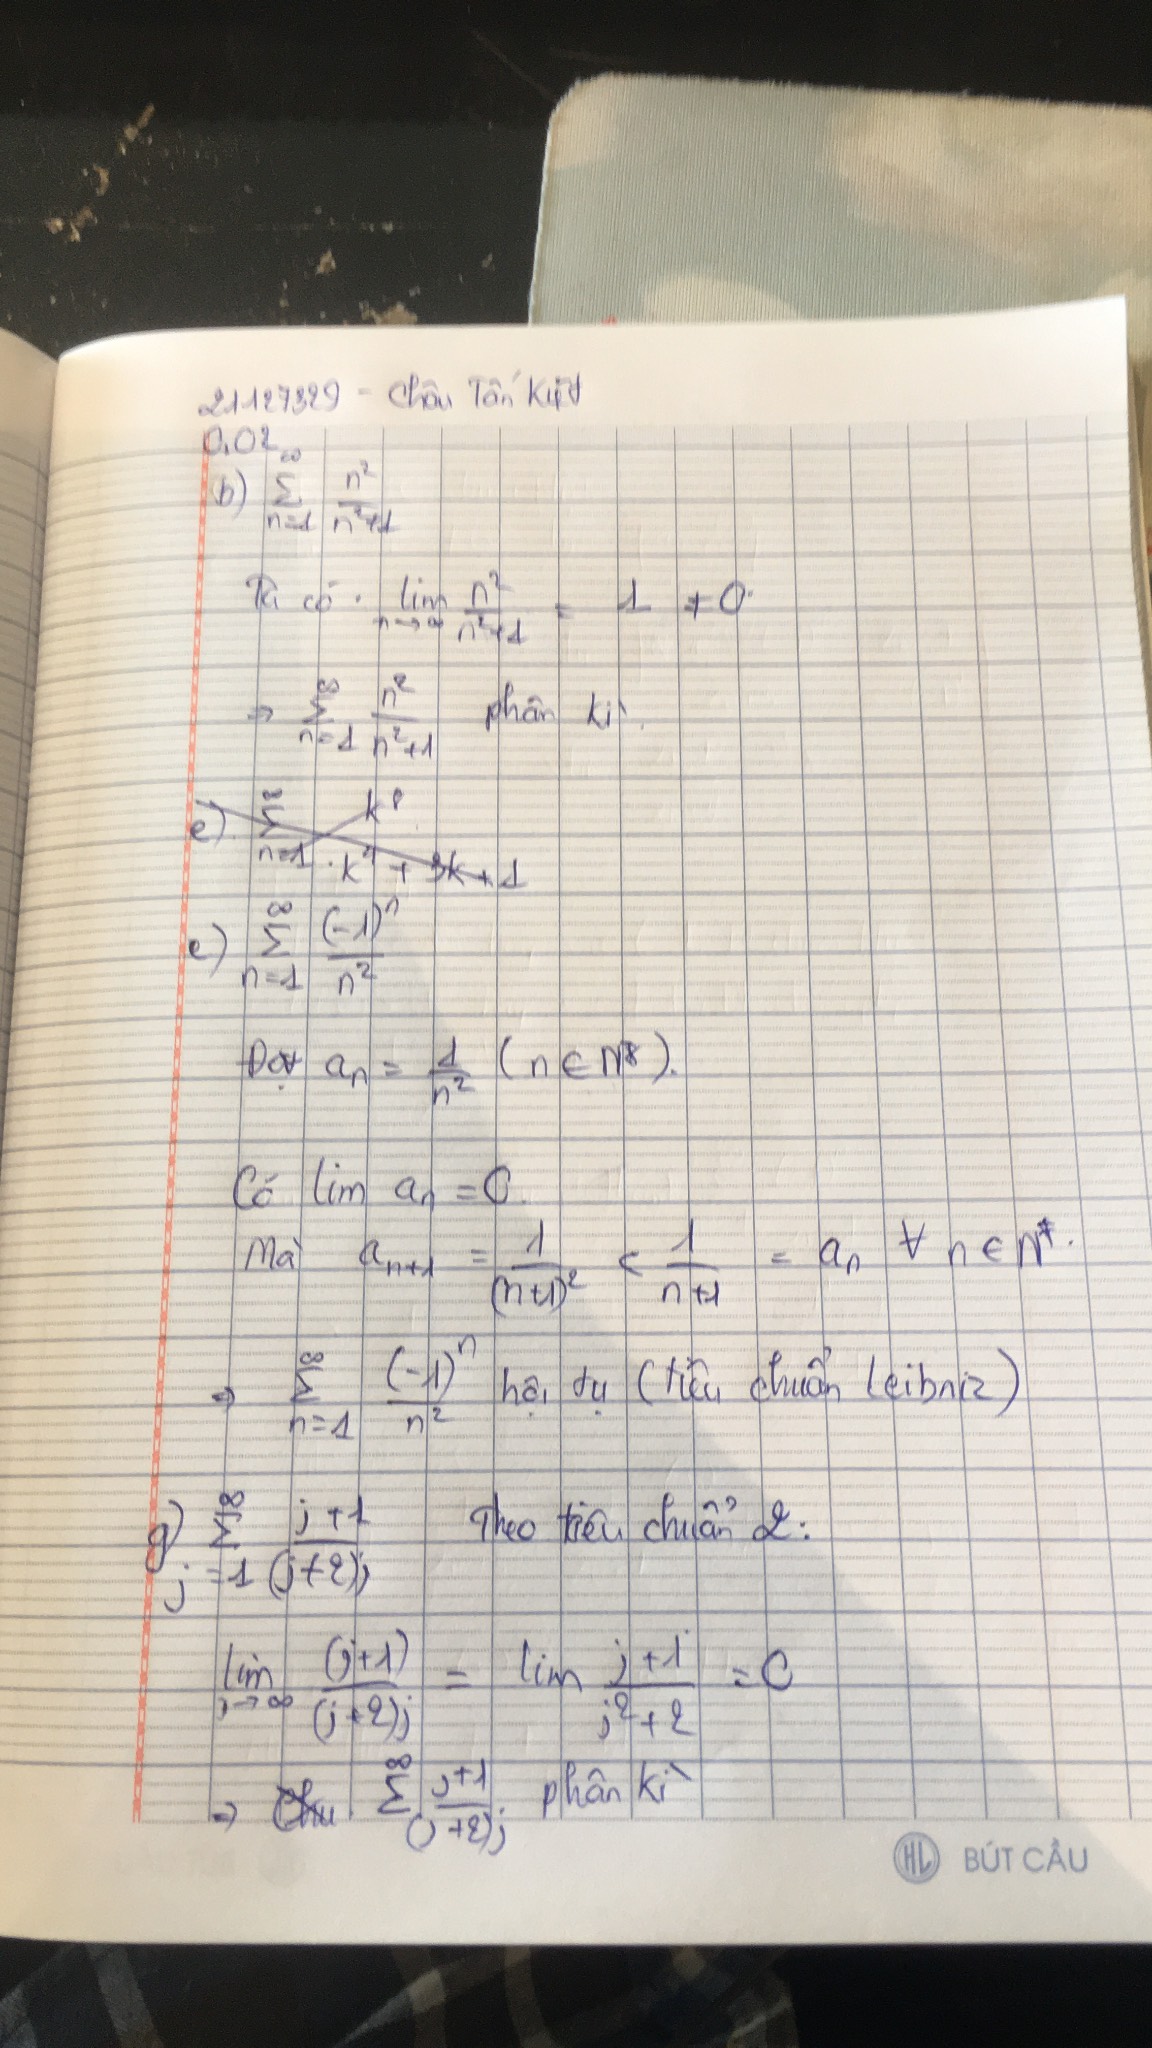 21127329 - Châu Tấn Kiệt
0.02
b) ∑_{n=1}^{∞} n²/(n²+1)
Ta có. lim_{n→∞} n²/(n²+1) = 1 ≠ 0.
⇒ ∑_{n=1}^{∞} n²/(n²+1) phân kì.
e) ∑_{n=1}^{∞} (-1)ⁿ/n²
Đặt aₙ = 1/n² (n ∈ N*).
Có lim aₙ = 0
Mà aₙ₊₁ = 1/(n+1)² < 1/(n+1) = aₙ ∀ n ∈ N*.
⇒ ∑_{n=1}^{∞} (-1)ⁿ/n² hội tụ (tiêu chuẩn Leibniz)
g) ∑_{j=1}^{∞} (j+1)/((j+2)j) Theo tiêu chuẩn 2:
lim_{j→∞} (j+1)/((j+2)j) = lim (j+1)/(j²+2) = 0
⇒ ∑^{∞} (j+1)/((j+2)j) phân kì
HL BÚT CÂU